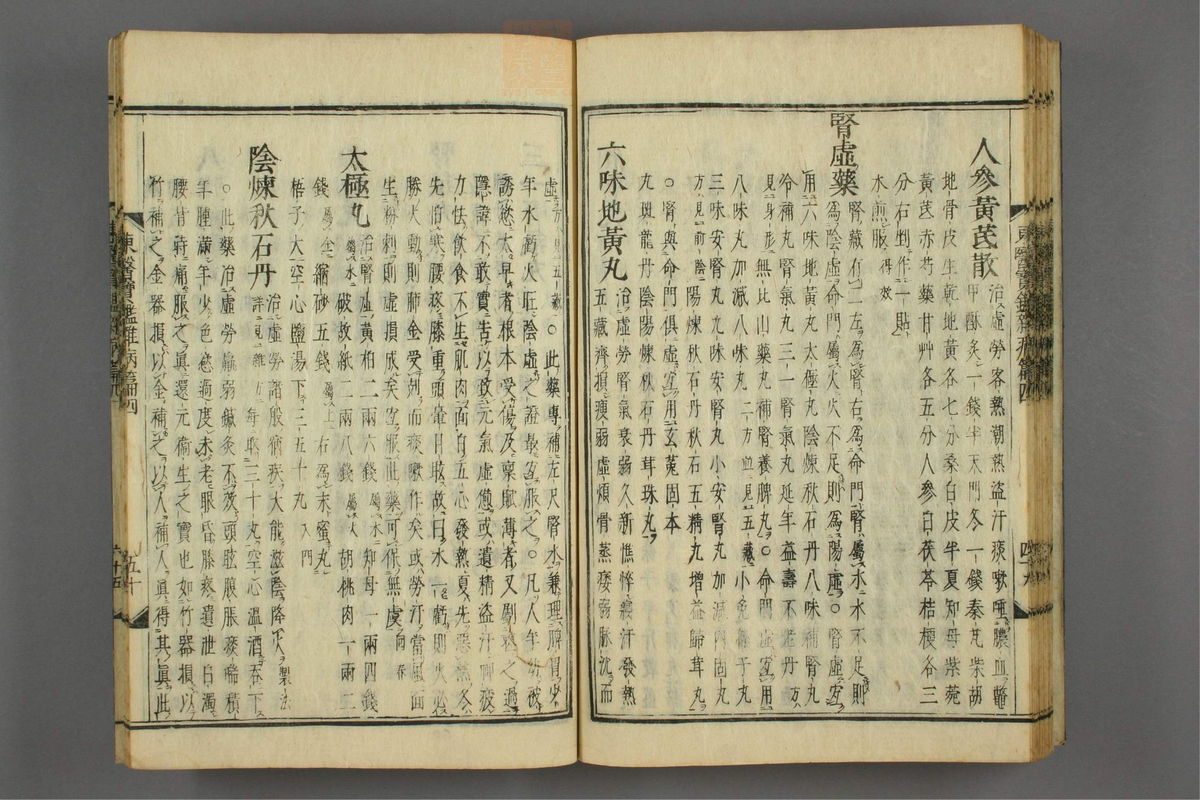 人參黃芪散 治虛勞客熱潮熱盜汗痰嗽唾膿血鱉
甲酥灸一錢半天門冬一錢秦艽柴胡
地骨皮生乾地黃各七分桑白皮半夏知母紫菀
黃芪赤芍藥甘艸各五分人參白茯苓桔梗各三
分右剉作一貼
水煎服 得效
腎虛藥 腎藏有二左爲腎右爲命門腎屬水水不足則
爲陰虛命門屬火火不足則爲陽虛○腎虛宜
用六味地黃丸太極丸陰煉秋石丹八味補腎丸
冷補丸腎氣丸三一腎氣丸延年益壽不老丹 方
見身形 無比山藥丸補腎養脾丸○命門虛宜用
八味丸加減八味丸 二方並見五藏 小兔絲子丸
三味安腎丸九味安腎丸小安腎丸加減內固丸
方見前陰 陽煉秋石丹秋石五精丸增益歸茸丸
○腎與命門俱虛宜用玄菟固本
丸斑龍丹陰陽煉秋石丹茸珠丸
六味地黃丸 治虛勞腎氣衰弱久新憔悴寢汗發熱
五藏齊損瘦弱虛煩骨蒸痿弱脈沈而
虛 方見五藏 ○此藥專補左尺腎水兼理脾胃少
年水虧火旺陰虛之證最宜服之○凡人年幼被
誘慾太早者根本受傷及稟賦薄者又斵喪之過
隱諱不敢實告以致元氣虛憊或遺精盜汗神疲
力怯飲食不生肌肉面白五心發熱夏先惡熱冬
先怕寒腰疼膝重頭暈目眩故曰水一虧則火必
勝火動則肺金受剋而痰嗽作矣或勞汗當風面
生粉刺則虛損成矣宜服此藥可保無虞 回春
太極丸 治腎虛黃柏二兩六錢 屬水 知母一兩四錢
屬水 破故紙二兩八錢 屬火 胡桃肉一兩二
錢 屬金 縮砂五錢 屬土 右爲末蜜丸
梧子大空心鹽湯下三五十丸 入門
陰煉秋石丹 治虛勞諸般痼疾大能滋陰降火 製法
詳見雜方 每取三十丸空心溫酒呑下
○此藥治虛勞羸弱鍼灸不效頭眩腹脹痰喘積
年腫滿年少色慾過度未老眼昏膝疼遺泄白濁
腰背疼痛服之眞還元衞生之寶也如竹器損以
竹補之金器損以金補之以人補人眞得其眞此
東醫寶鑑雜病篇四
四十九
東醫寶鑑雜病篇四
五十